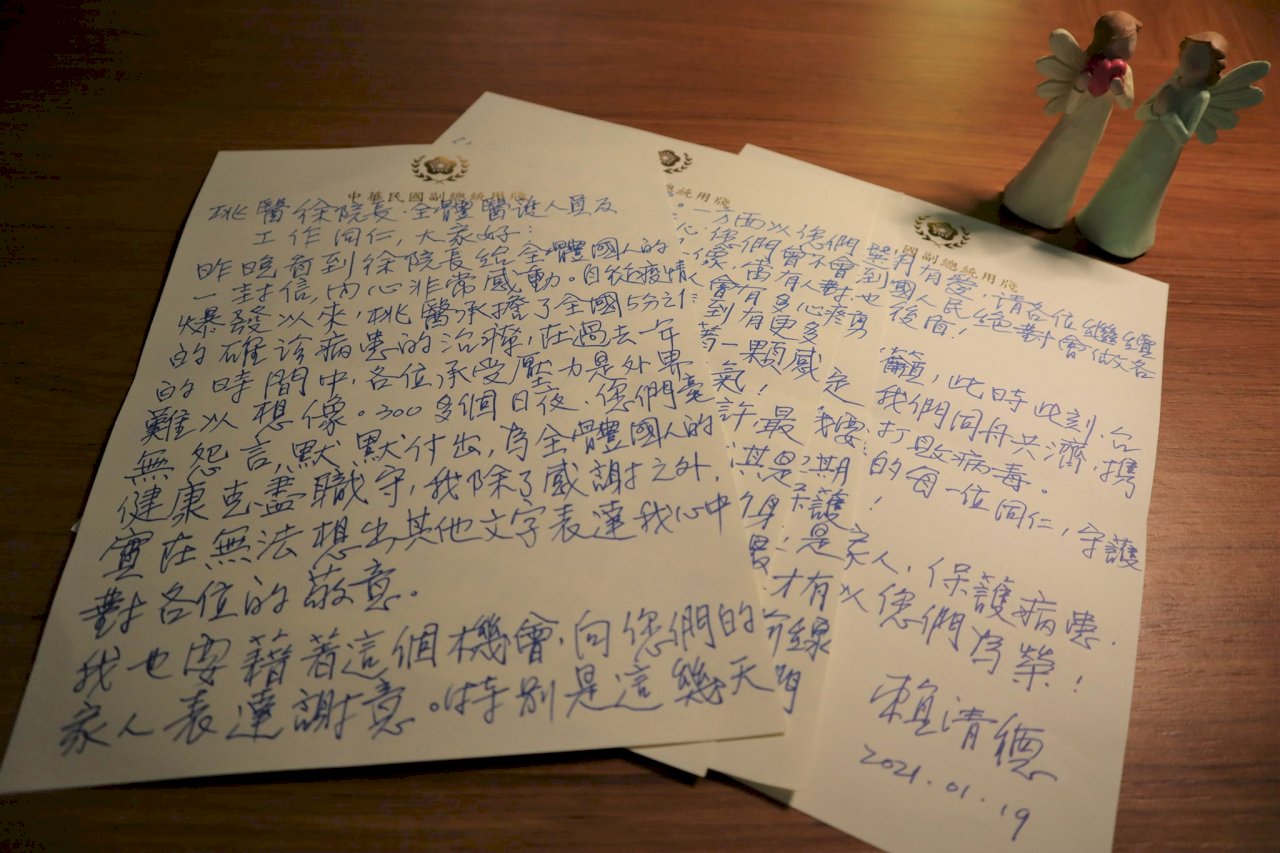 中華民國副總統用牋
桃醫徐院長、全體醫護人員及
工作同仁，大家好：
昨晚看到徐院長給全體國人的
一封信，內心非常感動。自從疫情
爆發以來，桃醫承擔了全國5分之1
的確診病患的治療，在過去一年
的時間中，各位承受壓力是外界
難以想像。300多個日夜，您們毫
無怨言，默默付出，為全體國人的
健康克盡職守，我除了感謝之外，
實在無法想出其他文字表達我心中
對各位的敬意。
我也要藉著這個機會，向您們的
家人表達謝意。特別是這幾天
總統用牋
。一方面以您們
您們會不會
候，當有人對
會有多心疼
到有更多
著一顆感
氣！
許，最
國副總統用牋
有愛，請各位繼續
國人民絕對會做各
後盾！
籲，此時此刻，台
我們同舟共濟，攜
打敗病毒。
的每一位同仁，守護
家人，保護病患，
以您們為榮！
賴清德
2021.01.19